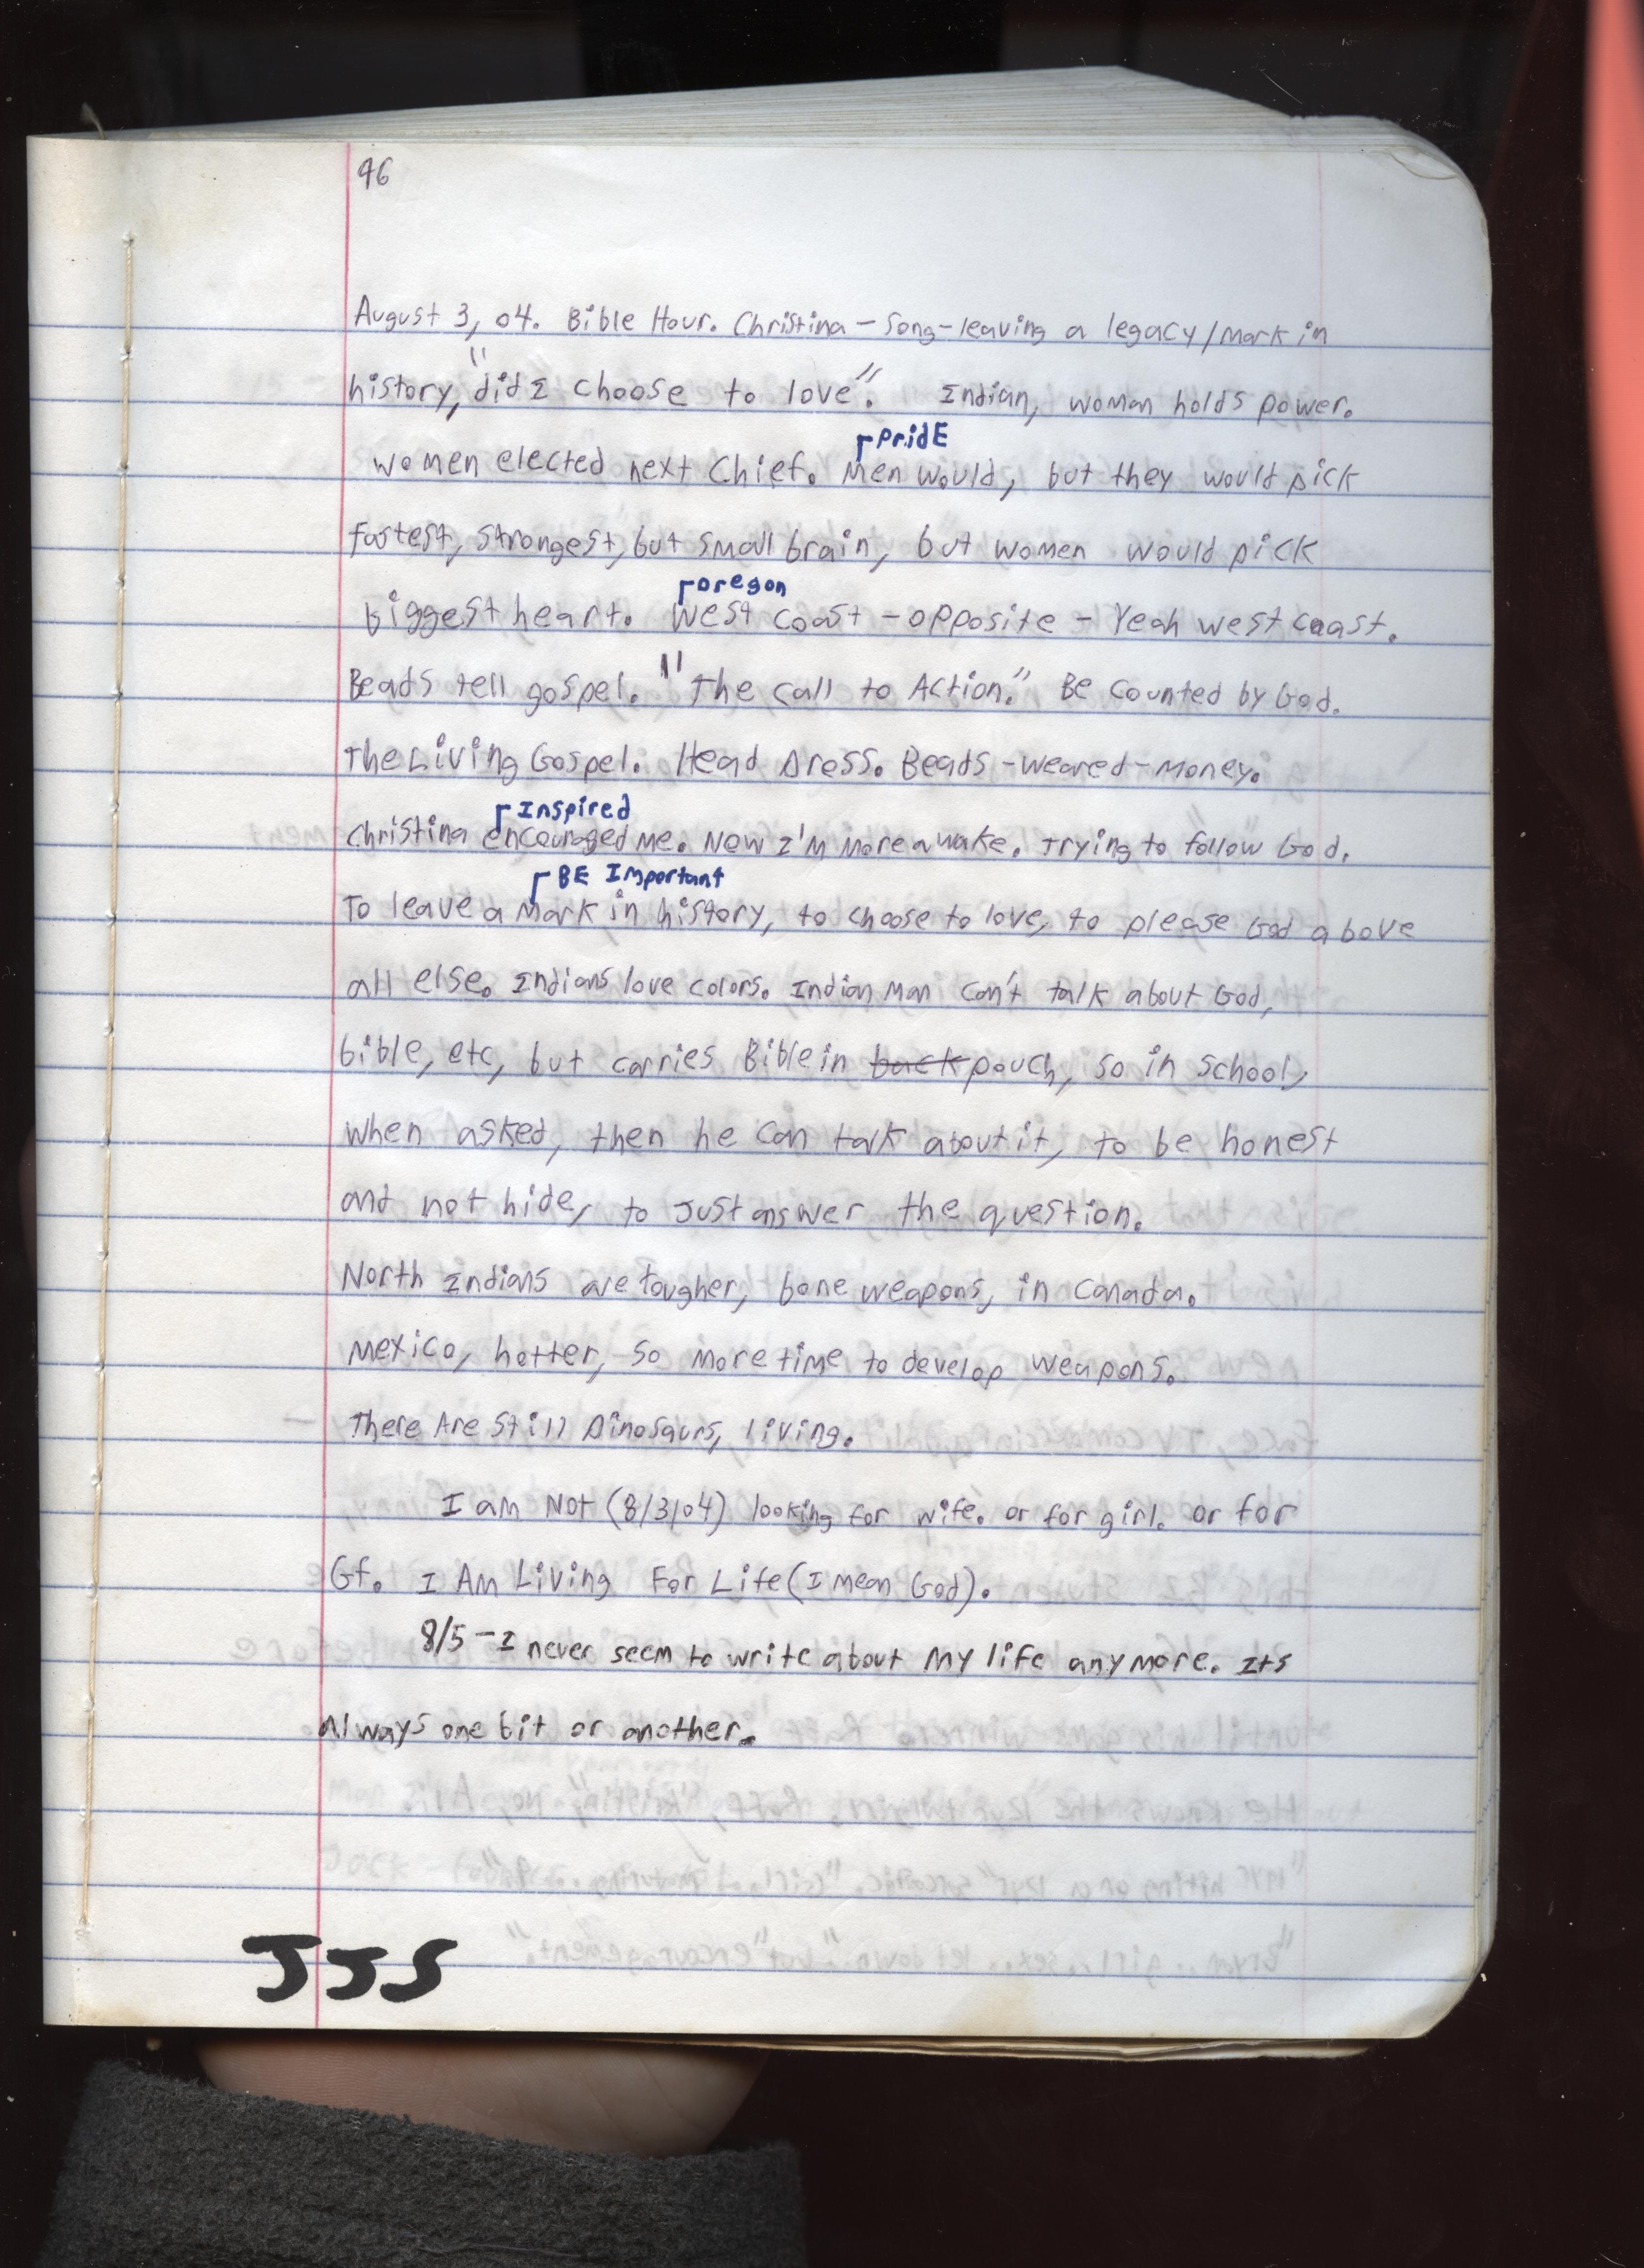 96
August 3, 04. Bible Hour. Christina - song - leaving a legacy/mark in
history, "did I choose to love". Indian, woman holds power.
Pride
Women elected next Chief. Men would, but they would pick
fastest, strongest, but small brain, but women would pick
biggest heart. West coast - opposite - Yeah west coast.
oregon
Beads tell gospel. "The call to Action." Be Counted by God.
The Living Gospel. Head Dress. Beads - weared - money.
Inspired
Christina encouraged me. Now I'm more awake. Trying to follow God.
BE Important
To leave a mark in history, to choose to love, to please God above
all else. Indians love colors. Indian man can't talk about God,
bible, etc, but carries Bible in back pouch, so in school,
when asked, then he can talk about it, to be honest
and not hide, to just answer the question.
North Indians are tougher, bone weapons, in Canada.
Mexico, hotter, so more time to develop weapons.
There Are Still Dinosaurs, living.
I am Not (8/3/04) looking for wife. or for girl. or for
Gf. I Am Living For Life (I mean God).
8/5 - I never seem to write about my life anymore. Its
Always one bit or another.
JJS